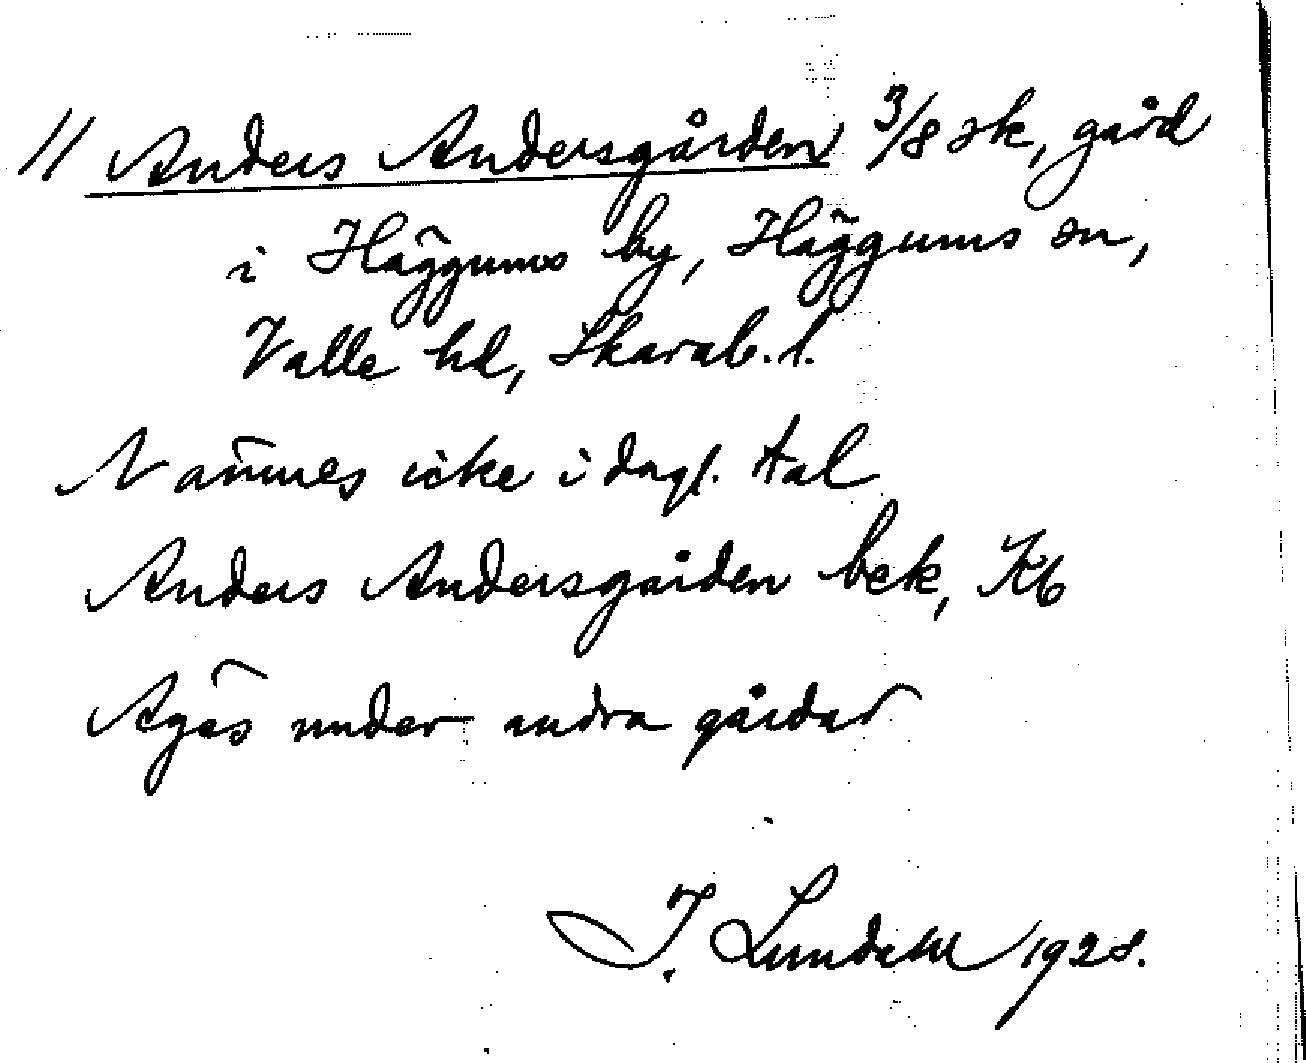 // Anders Andersgården 3/8 sk, gård
i Häggums by, Häggums sn,
Valle hd, Skarab. l.
Nämnes icke i dagl. tal
Anders Andersgården bek, Kb
Ägas under andra gårdar
J. Lundahl 1928.